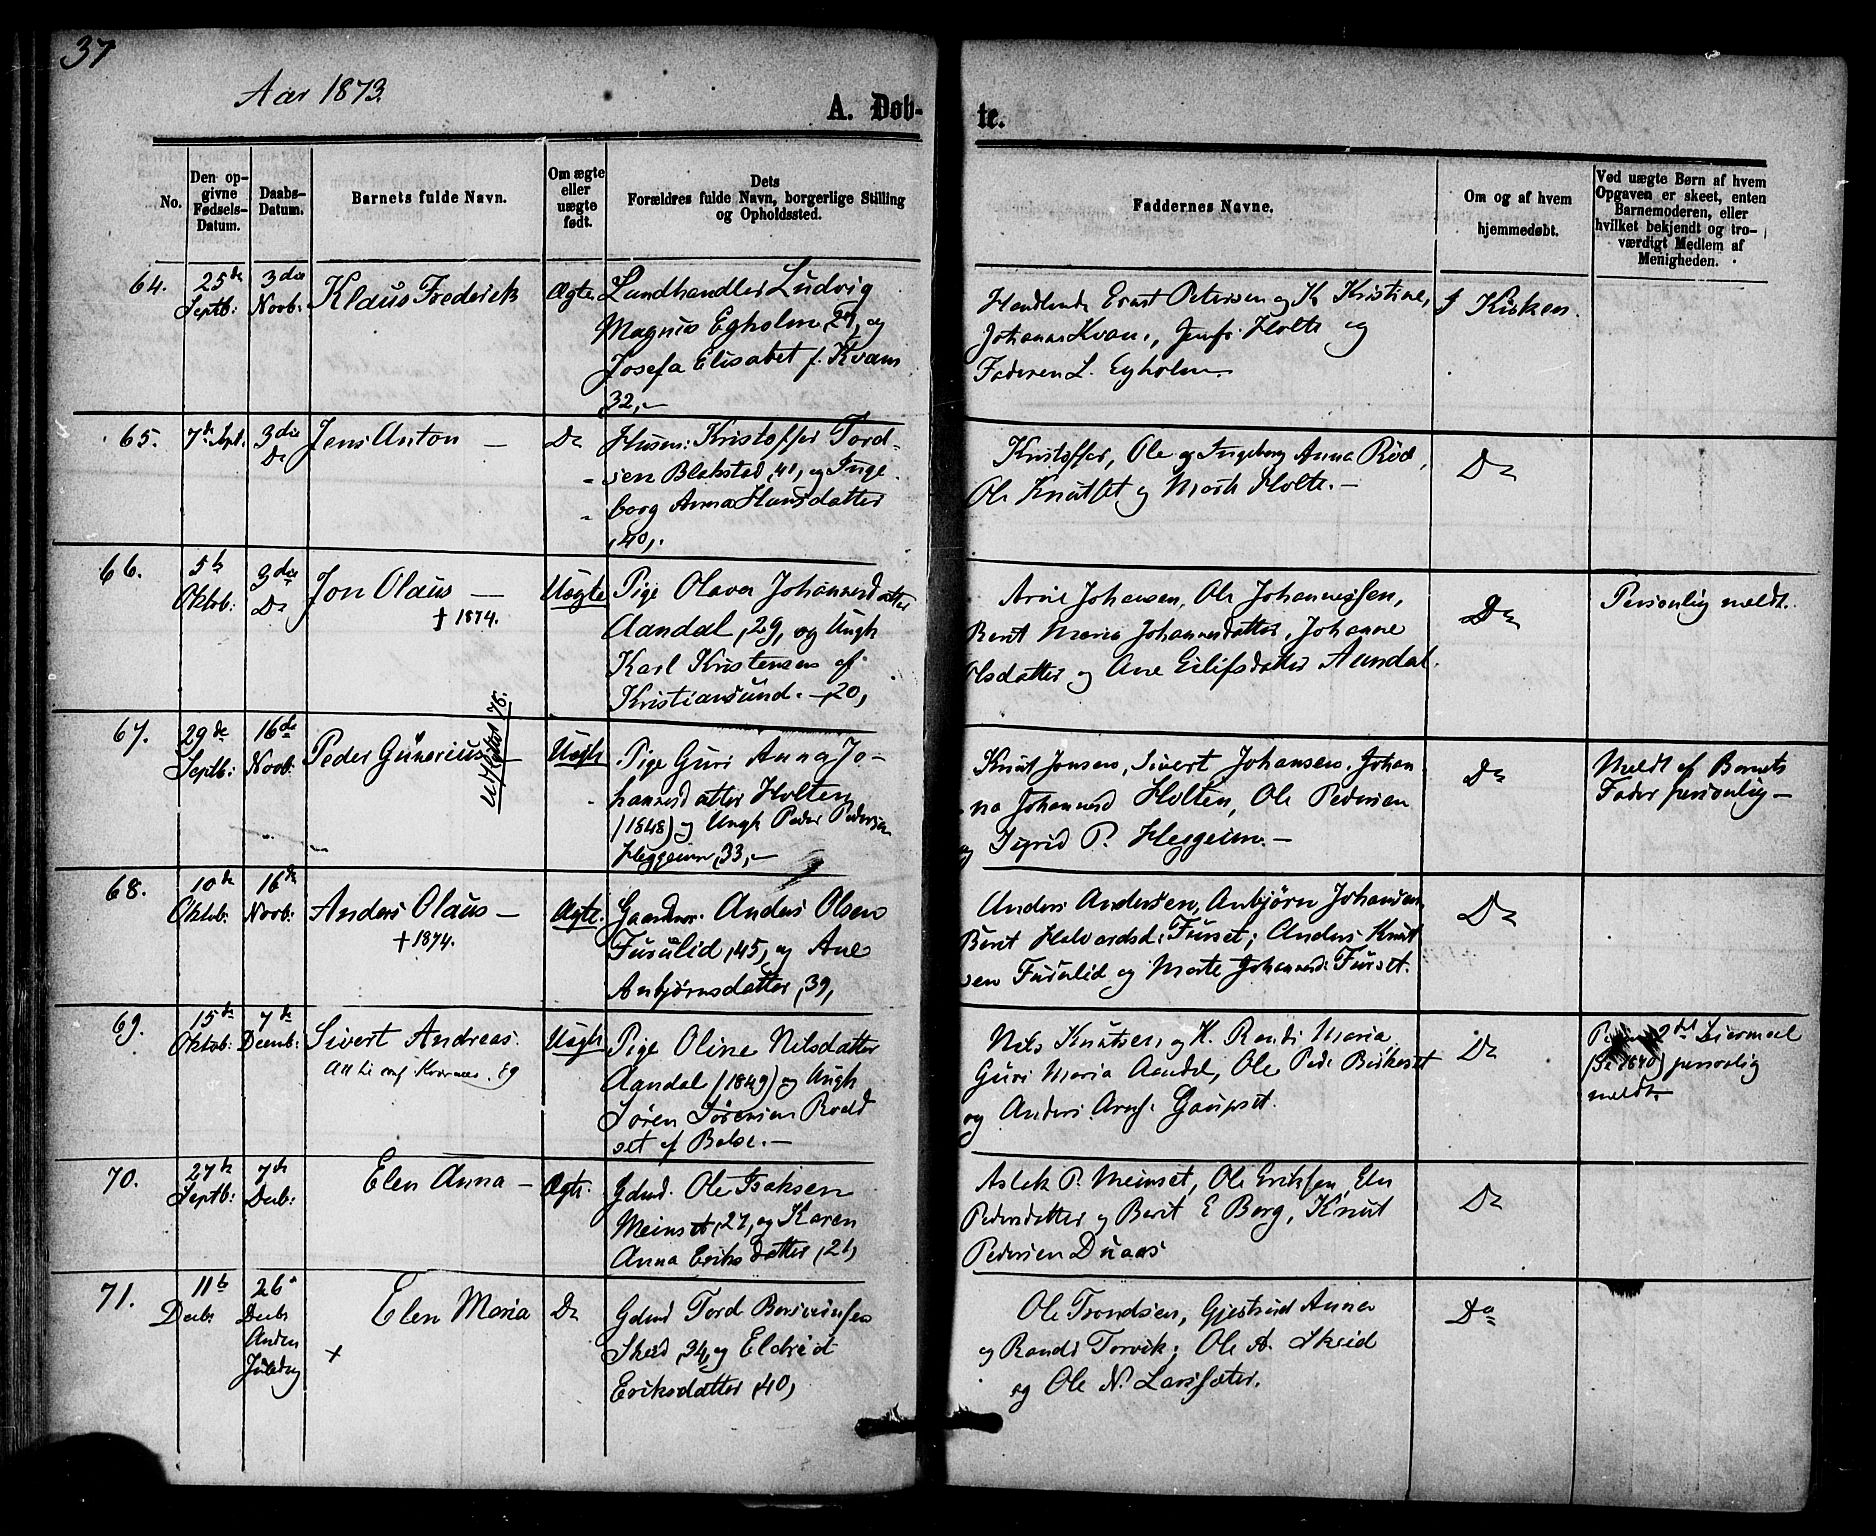 37
Aar 1873.
A. Døb-
te.
No.
Den op-
givne
Fødsels-
Datum.
Daabs-
Datum.
Barnets fulde Navn.
Om ægte
eller
uægte
født.
Dets
Forældres fulde Navn, borgerlige Stilling
og Opholdssted.
Faddernes Navne.
Om og af hvem
hjemmedøbt.
Ved uægte Børn af hvem
Opgaven er skeet, enten
Barnemoderen, eller
hvilket bekjendt og tro-
værdigt Medlem af
Menigheden.
64.
25de
Septb:
3die
Novb:
Klaus Frederik
Ægte
Landhandler Ludvig
Magnus Egholm 29, og
Josefa Elisabet f. Kvam
32,-
Handlende Ernst Petersen og K. Kristine,
Johanna Kvam, Jomfr. Holte og
Faderen L. Egholm.
I Kirken.
65.
7de Sept:
3die
Do
Jens Anton —
Do
Husm: Kristoffer Tord-
sen Blekstad, 41, og Inge-
borg Anna Hansdatter
,40,.
Kristoffer, Ole og Ingeborg Anna Rød,
Ole Knutset og Marit Holte. —
Do
66.
5te
Oktob:
3die
Do
Jon Olaus —
† 1874.
Uægte
Pige Olava Johannesdatter
Aandal, 29, og Ungk
Karl Kristensen af
Kristiansund. —,20,
Arne Johansen, Ole Johannessen,
Berit Maria Johannesdatter, Johanne
Olsdatter og Ane Eilifsdatter Aandal.
Do
Personlig meldt.
67.
29de
Septb:
16de
Novb:
Peder Gunerius
Uægte
Pige Guri Anna Jo-
hannesdatter Holten
(1848) og Ungk Peder Pedersen
Heggeim, 33,-
Knut Jonsen, Sivert Johansen, Johan
-na Johannesd Holten, Ole Pedersen
og Sigrid P. Heggeim. —
Do
Meldt af Barnets
Fader personlig —
68.
10de
Oktob:
16de
Novb:
Anders Olaus —
† 1874.
Ægte.
Gaardmr. Anders Olsen
Furulid, 45, og Ane
Anbjørnsdatter, 39,
Anders Andersen, Anbjørn Johansen,
Berit Halvardsd: Furset; Anders Knut
sen Furulid og Marte Johannesd: Furset.
Do
69.
15de
Oktob:
7de
Decemb:
Sivert Andreas.
Uægte
Pige Oline Nilsdatter
Aandal (1849) og Ungk
Søren Sørensen Roald
set af Bolsø. —
Nils Knutsen og K. Randi Maria,
Guri Maria Aandal, Ole Peds. Birkeset
og Anders Arnf. Gaupset.
Do
2det Leiermaal
personlig
meldt.
70.
27de
Septb:
7de
Decb:
Elen Anna —
Ægte.
Gdmd. Ole Isaksen
Meinset, 27, og Karen
Anna Eriksdatter, 21,
Aslak P. Meinset, Ole Eriksen, Elen
Pedersdatter og Berit E Berg, Knut
Pedersen Duaas
Do
71.
11te
Decb:
26de
Decb:
Anden
Juledag
Elen Maria
+
Do
Gdmd Tord Bersveinsen
Skeid, 34, og Eldrid
Eriksdatter, 40,
Ole Trondsen, Gjertrud Anna
og Randi Torvik; Ole A. Skeid
og Ole N. Larssæter.
Do